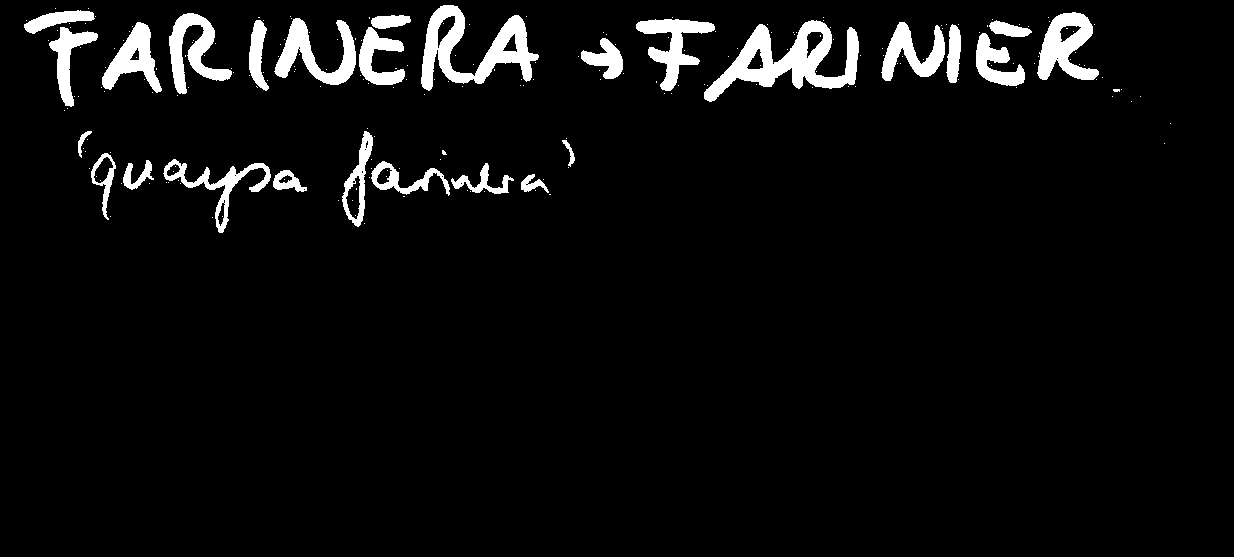 FARINERA → FARINIER
'quaypa farinera'